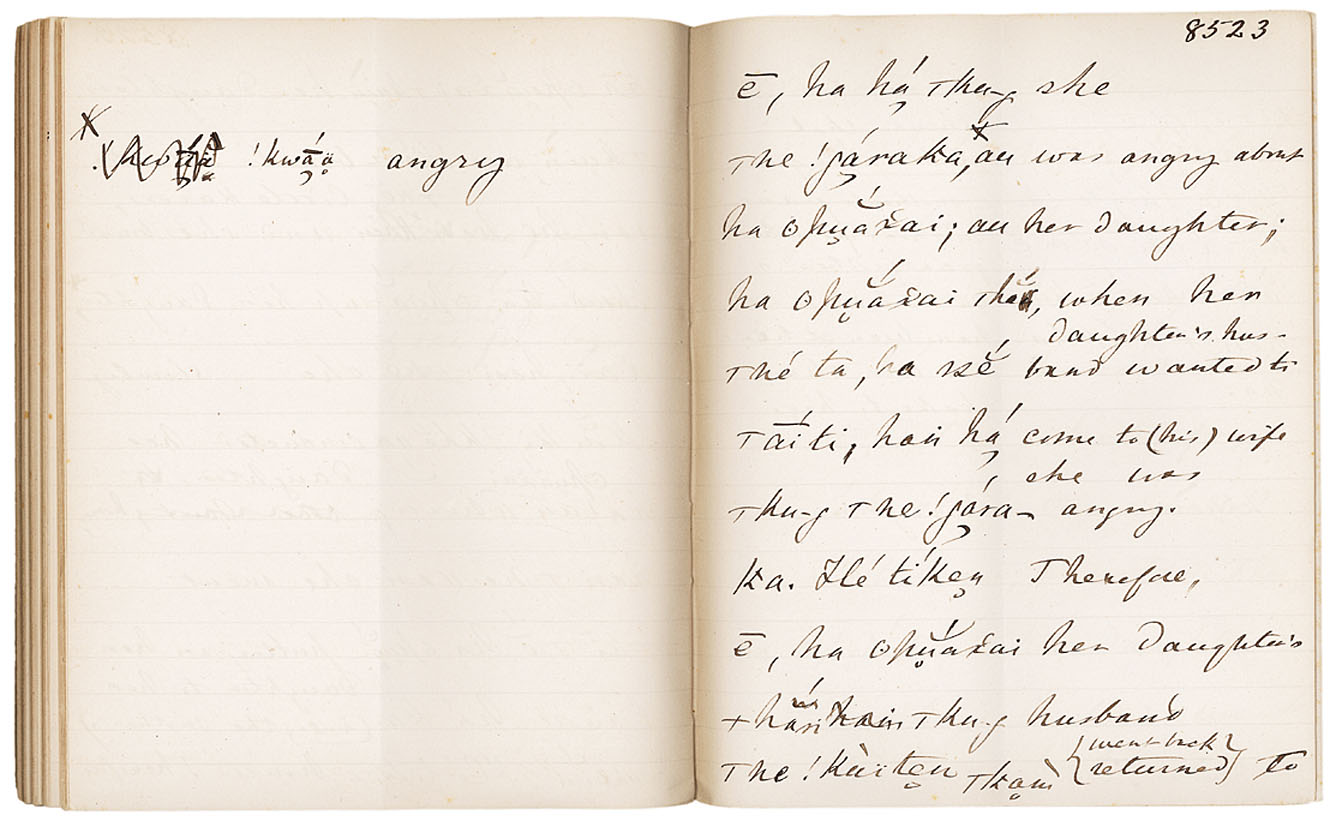 X
!kwā́ä angry
8523
ē, ha há̦ Tku-g she
The !gáraka, X au was angry about
ha Opuä́χai; au her daughter;
ha Opuä́χai when her
daughter's hus-
Thé ta, ha sé band wanted to
Tāíti, han há̦ come to (his) wife
she was
Tku-g The !gára- angry.
ka. Hé tíken Therefore,
ē, ha Opuä́χai her daughter's
Tku-g husband
The !kàïten Tkam {went back / returned} to